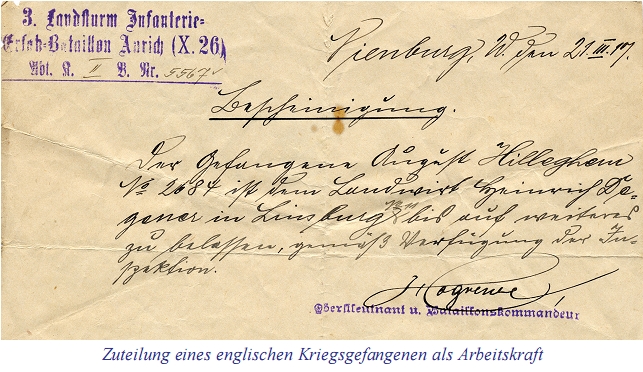 3. Landsturm Infanterie=
Ersatz-Bataillon Aurich (X. 26)
Abt. K. II B. Nr. 5567
Nienburg, W. den 21.III.17.
Bescheinigung.
Der Gefangene August Hilleghem
No 2684 ist dem Landwirt Heinrich De-
gener in Linsburg bis auf weiteres
zu belassen, gemäß Verfügung der In-
spektion.
Oberstleutnant u. Bataillonskommandeur
Zuteilung eines englischen Kriegsgefangenen als Arbeitskraft